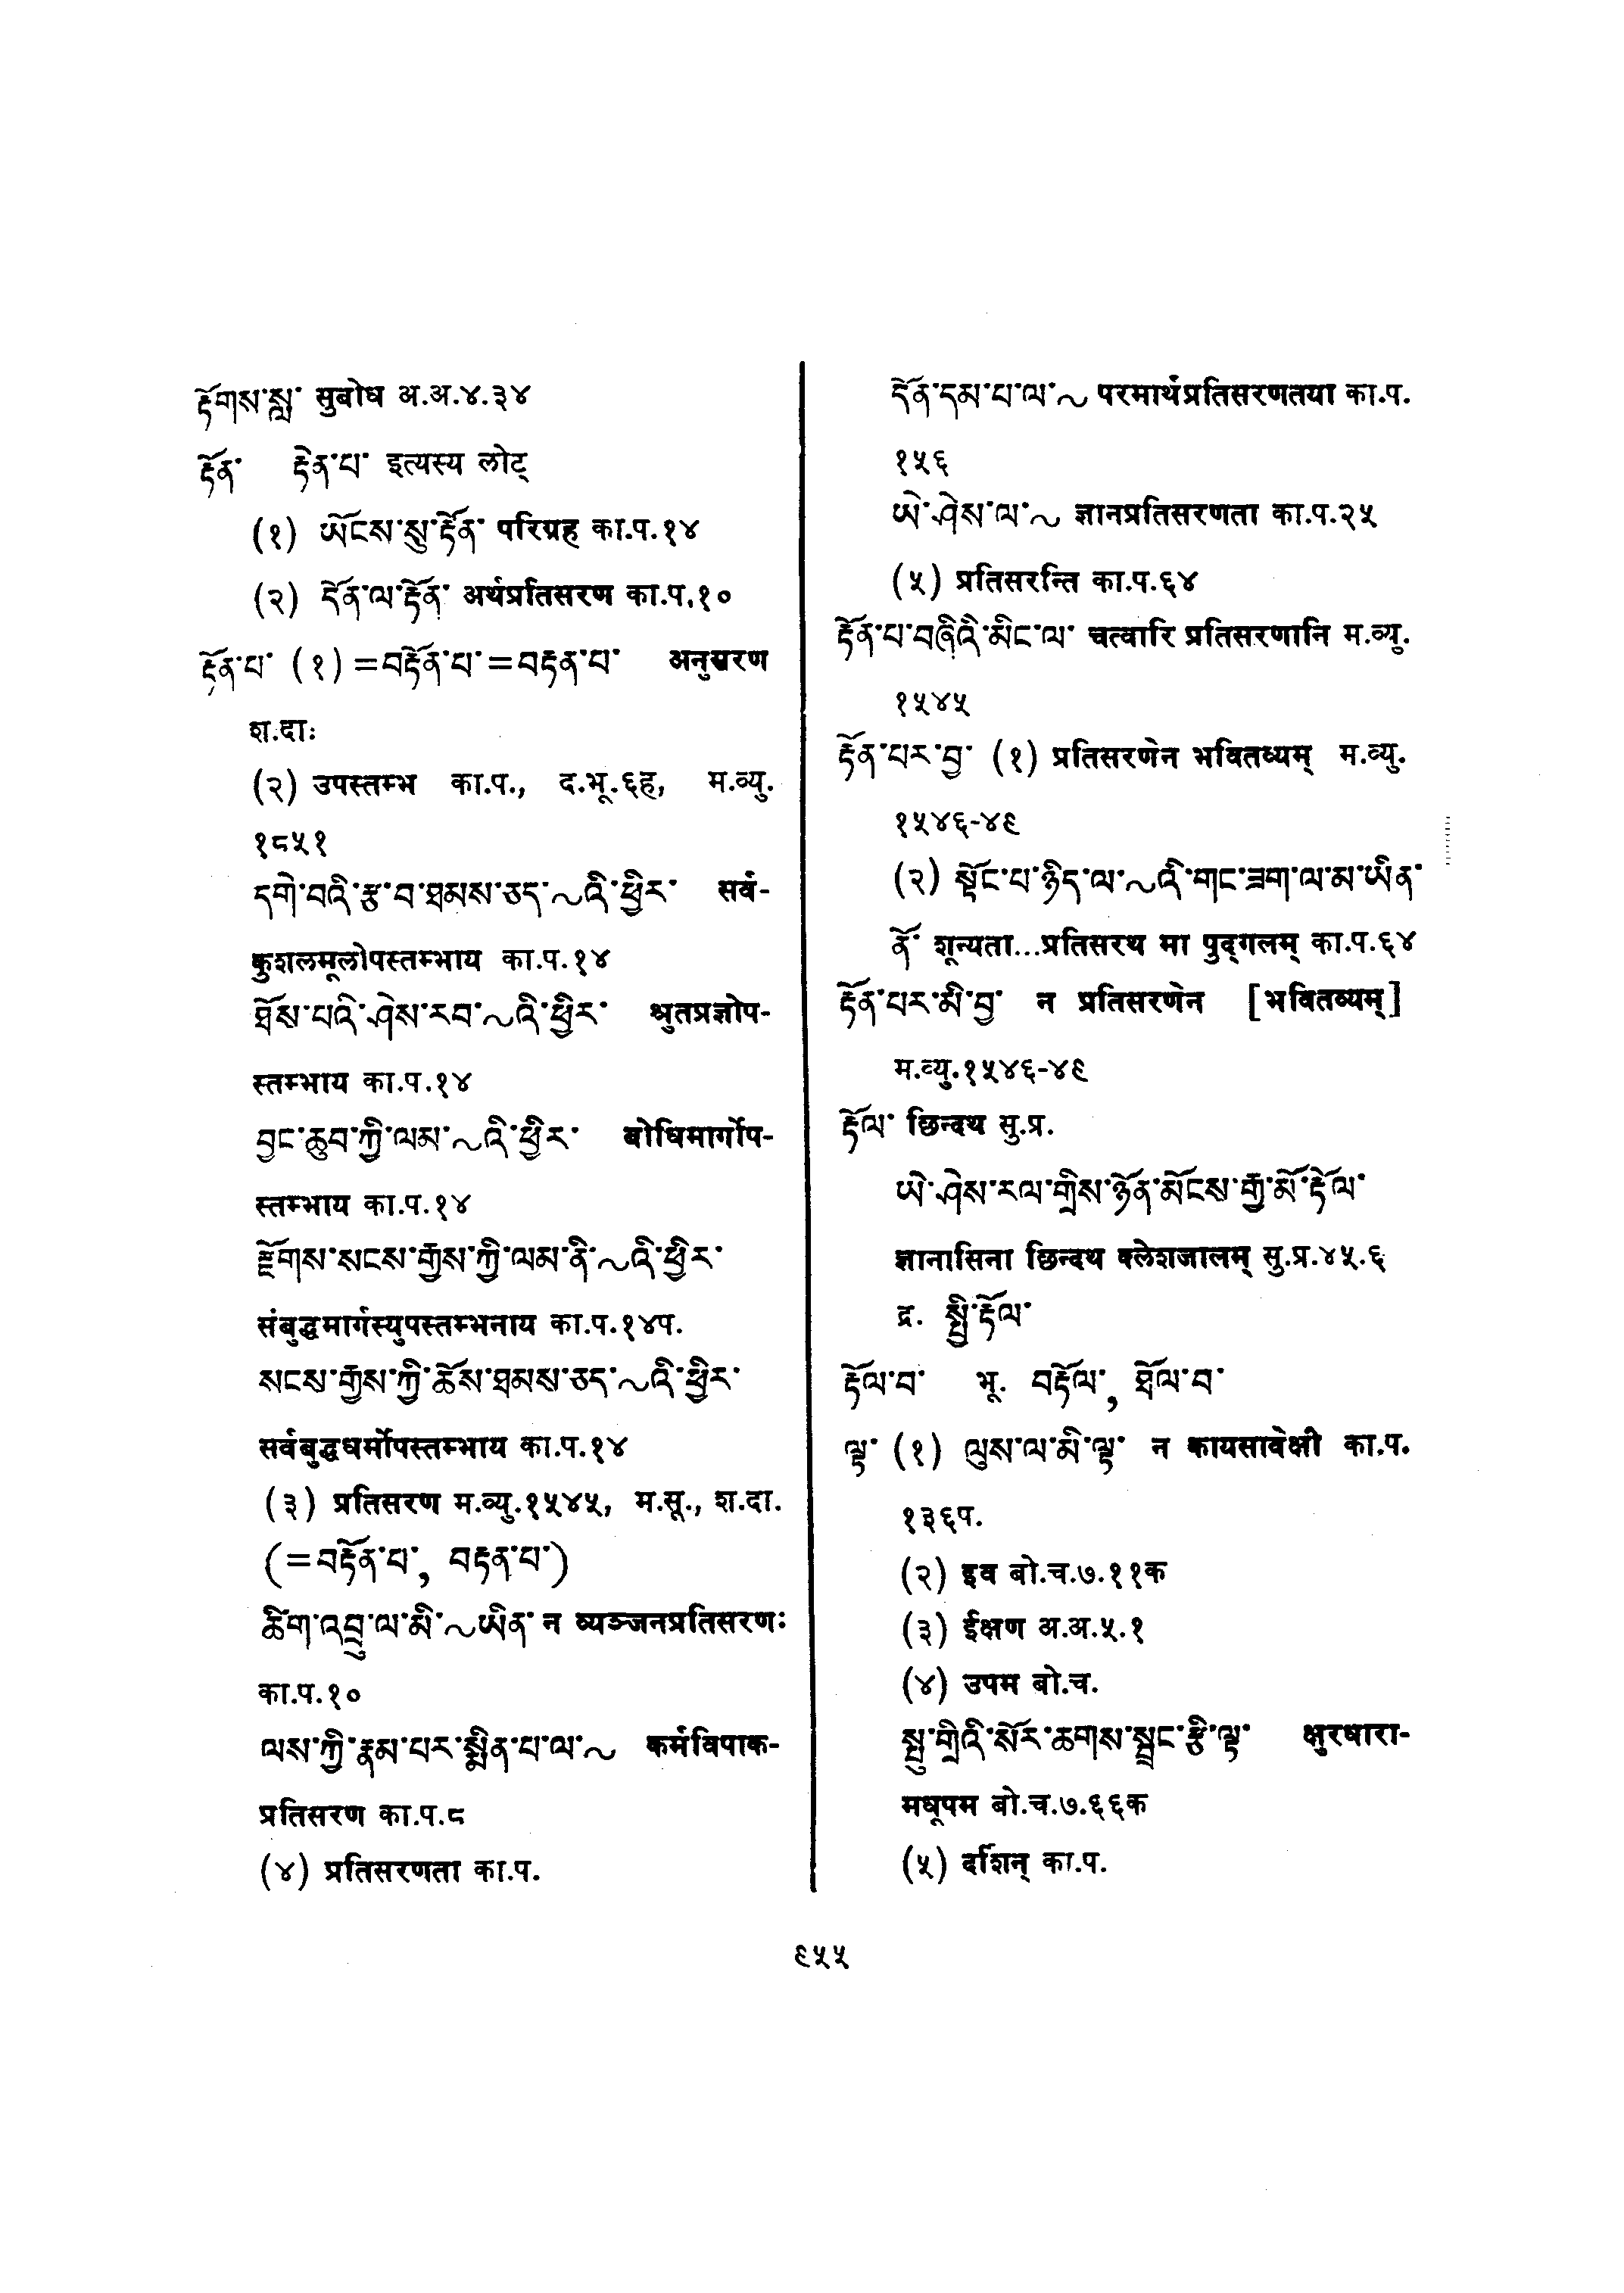 རྟོགས་སླ་ सुबोध अ.अ.४.३४
རྟོན་ རྟེན་པ་ इत्यस्य लोट्
(१) ཡོངས་སུ་རྟོན་ परिग्रह का.प.१४
(२) དོན་ལ་རྟོན་ अर्थप्रतिसरण का.प.१०
རྟོན་པ་ (१) =བརྟོན་པ་=བརྟན་པ་ अनुसरण
श.दाः
(२) उपस्तम्भ का.प., द.भू.६ह, म.व्यु.
१८५१
དགེ་བའི་རྩ་བ་ཐམས་ཅད་～འི་ཕྱིར་ सर्व-
कुशलमूलोपस्तम्भाय का.प.१४
ཐོས་པའི་ཤེས་རབ་～འི་ཕྱིར་ श्रुतप्रज्ञोप-
स्तम्भाय का.प.१४
བྱང་ཆུབ་ཀྱི་ལམ་～འི་ཕྱིར་ बोधिमार्गोप-
स्तम्भाय का.प.१४
རྫོགས་སངས་རྒྱས་ཀྱི་ལམ་ནི་～འི་ཕྱིར་
संबुद्धमार्गस्युपस्तम्भनाय का.प.१४प.
སངས་རྒྱས་ཀྱི་ཆོས་ཐམས་ཅད་～འི་ཕྱིར་
सर्वबुद्धधर्मोपस्तम्भाय का.प.१४
(३) प्रतिसरण म.व्यु.१५४५, म.सू., श.दा.
(=བརྟོན་པ་, བརྟན་པ་)
ཚིག་འབྲུ་ལ་མི་～ཡིན་ न व्यञ्जनप्रतिसरणः
का.प.१०
ལས་ཀྱི་རྣམ་པར་སྨིན་པ་ལ་～ कर्मविपाक-
प्रतिसरण का.प.८
(४) प्रतिसरणता का.प.
དོན་དམ་པ་ལ་～ परमार्थप्रतिसरणतया का.प.
१५६
ཡེ་ཤེས་ལ་～ ज्ञानप्रतिसरणता का.प.२५
(५) प्रतिसरन्ति का.प.६४
རྟོན་པ་བཞིའི་མིང་ལ་ चत्वारि प्रतिसरणानि म.व्यु.
१५४५
རྟོན་པར་བྱ་ (१) प्रतिसरणेन भवितव्यम् म.व्यु.
१५४६-४९
(२) སྟོང་པ་ཉིད་ལ་～འི་གང་ཟག་ལ་མ་ཡིན་
ནོ་ शून्यता...प्रतिसरथ मा पुद्गलम् का.प.६४
རྟོན་པར་མི་བྱ་ न प्रतिसरणेन [भवितव्यम्]
म.व्यु.१५४६-४९
རྟོལ་ छिन्दथ सु.प्र.
ཡེ་ཤེས་རལ་གྲིས་ཉོན་མོངས་རྒྱ་མོ་རྟོལ་
ज्ञानासिना छिन्दथ क्लेशजालम् सु.प्र.४५.६
द्र. སྤྱི་རྟོལ་
རྟོལ་བ་ भू. བརྟོལ་, ཐོལ་བ་
ལྟ་ (१) ལུས་ལ་མི་ལྟ་ न कायसावेक्षी का.प.
१३६प.
(२) इव बो.च.७.११क
(३) ईक्षण अ.अ.५.१
(४) उपम बो.च.
སྤུ་གྲིའི་སོར་ཆགས་སྦྲང་རྩི་ལྟ་ क्षुरधारा-
मधूपम बो.च.७.६६क
(५) दर्शिन् का.प.
९५५